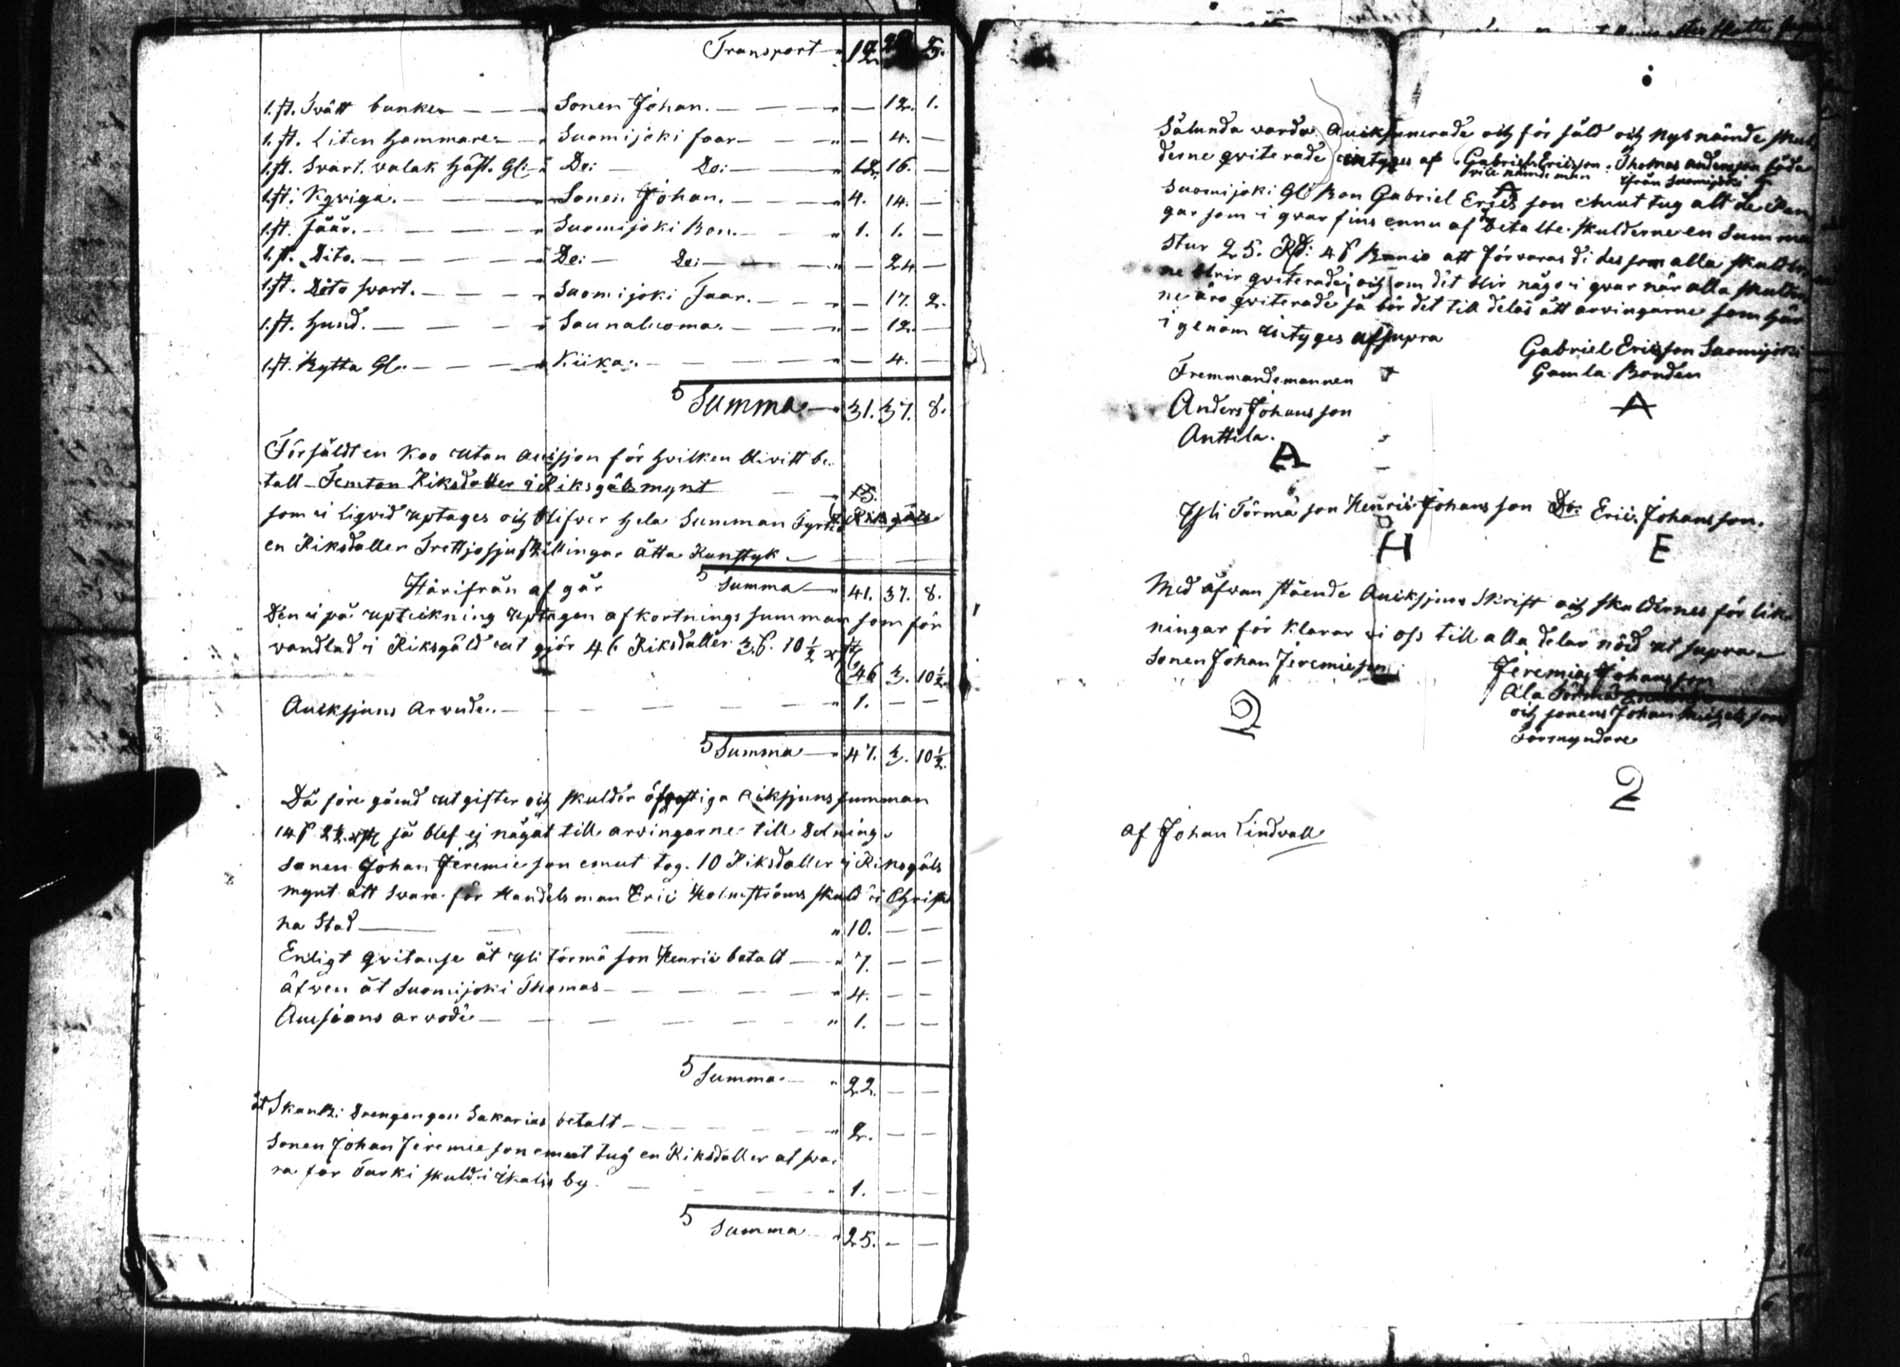 Transport " 12. 5.
1. st. Tvätt bunke " Sonen Johan. " — 12. 1.
1. st. Liten Hammare " Suomijoki faar " — 4. —
1. st. Svart valak Häst. Gl: " Do: Do: 12. 16. —
1. st. Kqviga. " Sonen Johan. " 4. 14. —
1. st. Fåår. " Suomijoki Bon. " 1. 1. —
1. st. Dito. " Do: Do: " — 24 —
1. st. Dito svart. " Suomijoki Faar. " — 17. 2.
1. st. Hund. " Saunaluoma. " — 12. —
1. st. Rytta Gl. " Kiika. " — 4. —
Summa " 31. 37. 8.
Försåldt en Koo utan Auksjon för hvilken blivitt be
tall Femton Riksdaller i Riksgäls mynt
som i liqvid uptages och blifver hela Summan Fyrtio
en Riksdaller Trettjosju skillingar åtta Runstyk
Härifrån af går Summa 41. 37. 8.
Den i på uptekning uptagen afkortnings summan som för
vandlad i Riksgäld ut gjör 46 Riksdaller 3 s. 10 ½ rst
46 3. 10½
Aukssjuns Arvude. " 1. — —
Summa " 47. 3. 10½
Då före gåend utgifter och skulder Auksjuns summan
14 s 2½ rst så blef ej något till arvingarne till Delning.
Sonen Johan Jeremie son emut tog. 10 Riksdaller i Riksgäls
mynt att Svara för Handelsman Eric Holmströms skuld i Christi
na Stad " 10. — —
Enligt qvitanse åt yli törmä son Henric betalt " 7. — —
äfven åt Suomijoki Thomas " 4. — —
Ausions arvode " 1. — —
Summa " 22. — —
åt Skantz: Sakarias betalt " 2. — —
Sonen Johan Jeremie son emut tug en Riksdaller at sva
ra för Turki skuld i by " 1. — —
Summa " 25. — —
Sålunda varda Auksjunerade och för såld och nys nämde skul
derne qviterade intyges af Gabriel Ericsson. Thomas Andersson
ifrån Suomijoki
Suomijoki Gl: Bon Gabriel Erics son emut tug alt de Pen
gar som i qvar fins ennu af betalte skulderne en Summa
stur 25. Rd: 4 s att förvaras di des som alla skulder
ne blir qviterade; och om det blir någo i qvar när alla skulder
ne äro qviterade så bör det till delas ått arvingarne som här
igenom intyges af supra
Gabriel Ericsson Suomijoki
Gamla Bonden
A
Fremmandemannen
Anders Johansson
Anttila.
A
Yli Törmä son Henric Johansson Do: Eric Johansson.
H E
Med åfvan stående Auksjuns Skrift och skuldernes för lik
ningar för klarar vi oss till alla delar nöid ut supra
Sonen Johan Jeremieson Jeremias Johansson
Ala Törmä
och sonens Johan
Förmyndare
2
af Johan Lindvall